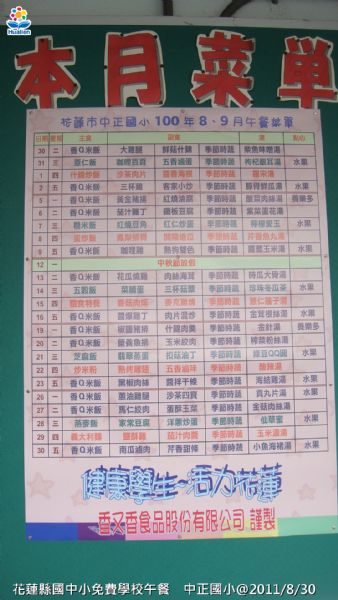 Hualien
本月菜單
花蓮市中正國小 100 年 8、9 月午餐菜單
日期 星期 主食 副食 湯 點心
30 二 香Q米飯 大雞腿 鮮菇什錦 季節時蔬 柴魚味噌湯
31 三 薏仁飯 咖哩百頁 五香滷蛋 季節時蔬 枸杞銀耳湯 水果
1 四 什錦炒飯 沙茶肉片 季節時蔬 羅宋湯
2 五 香Q米飯 三杯雞 客家小炒 季節時蔬 水果
5 一 香Q米飯 黃金豬排 紅燒油腐 季節時蔬 酸菜肉絲湯 養樂多
6 二 香Q米飯 茄汁雞丁 鐵板豆腐 季節時蔬 紫菜蛋花湯
7 三 糙米飯 紅燒豆角 紅仁炒蛋 季節時蔬 檸檬愛玉 水果
8 四 季節時蔬 芹香魚丸湯
9 五 香Q米飯 咖哩雞 熱狗雙色 季節時蔬 水果
12 一 中秋節放假
13 二 香Q米飯 花瓜燒雞 肉絲海茸 季節時蔬 時瓜大骨湯
14 三 五穀飯 菜脯蛋 三杯菇蕈 季節時蔬 珍珠冬瓜茶 水果
15 四 季節時蔬
16 五 香Q米飯 醬爆雞丁 肉片溫炒 季節時蔬 金茸根絲湯 水果
19 一 香Q米飯 椒鹽豬排 什錦肉羹 季節時蔬 金針湯 養樂多
20 二 香Q米飯 螢養魚排 玉米絞肉 季節時蔬 榨菜粉絲湯
21 三 芝麻飯 翡翠蒸蛋 扣菇油丁 季節時蔬 綠豆QQ圓 水果
22 四 炒米粉 五香滷味 季節時蔬 酸辣湯
23 五 香Q米飯 黑椒肉絲 醬拌干條 季節時蔬 海結雞湯 水果
26 一 香Q米飯 蔥油雞腿 沙茶四寶 季節時蔬 貢丸片湯 水果
27 二 香Q米飯 馬仁絞肉 蛋酥玉菜 季節時蔬 金菇肉絲湯
28 三 燕麥飯 家常豆腐 洋蔥炒蛋 季節時蔬 仙草蜜 水果
29 四 義大利麵 鹽酥雞 茄汁肉醬 季節時蔬 玉米濃湯
30 五 香Q米飯 南瓜滷肉 芹香甜條 季節時蔬 小魚海裙湯 水果
健康學生~活力花蓮
香又香食品股份有限公司 謹製
花蓮縣國中小免費學校午餐 中正國小@2011/8/30